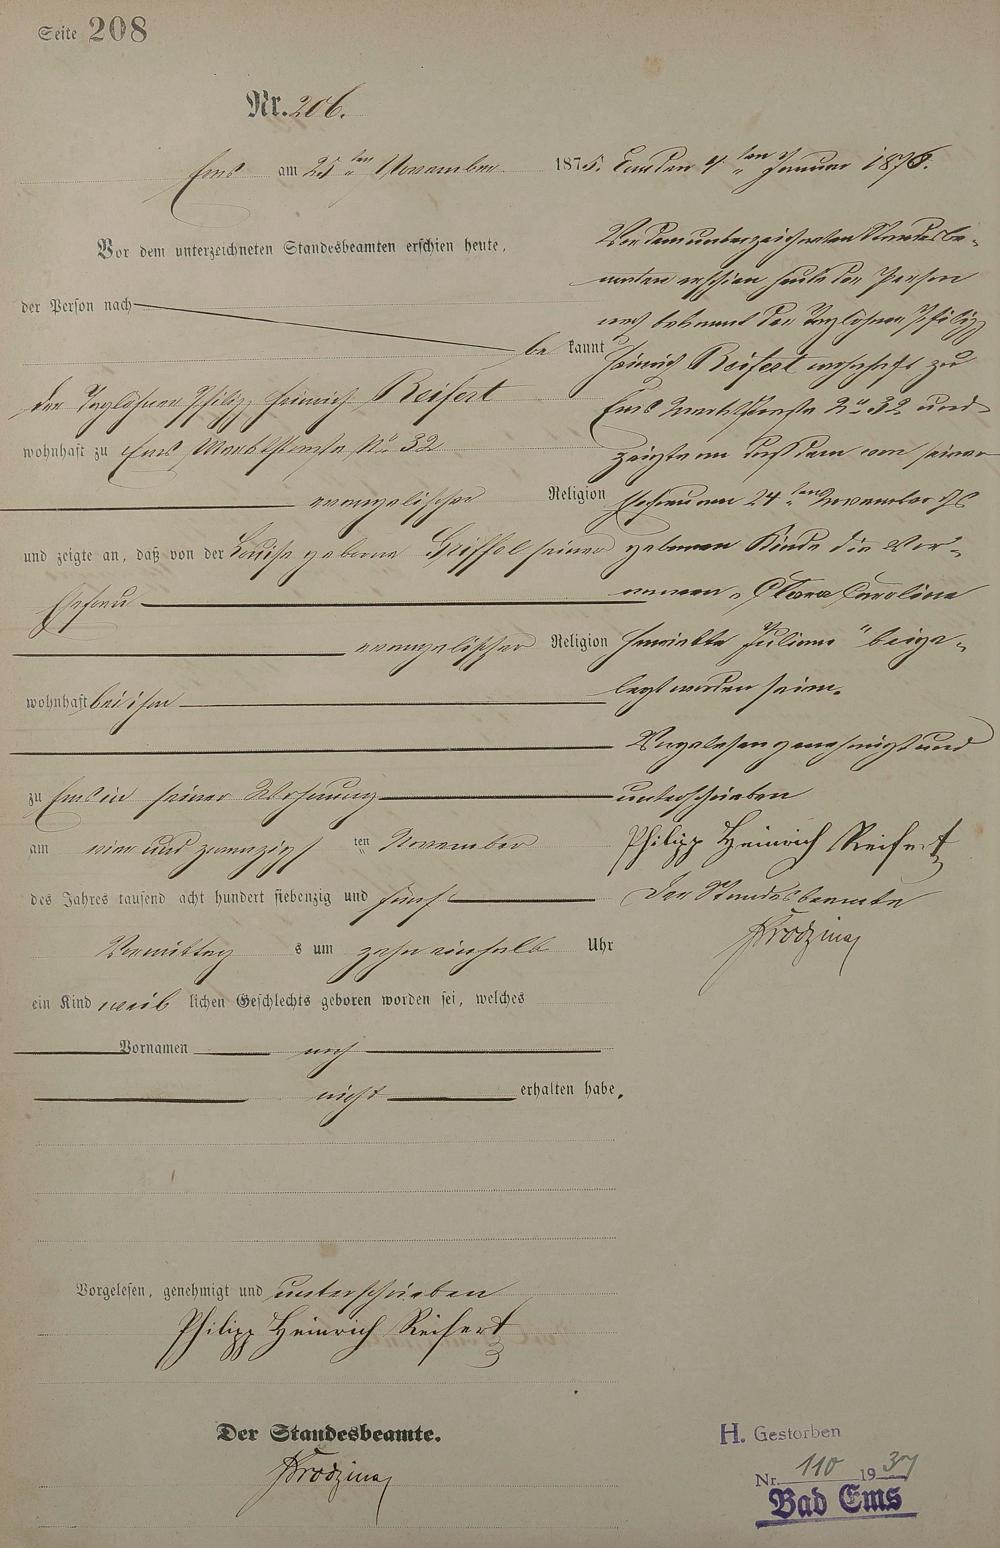 Seite 208
Nr. 206.
Ems am 25ten November 1875.
Vor dem unterzeichneten Standesbeamten erschien heute,
der Person nach
be kannt
der Taglöhner Philipp Heinrich Reifert
wohnhaft zu Ems Marktstraße No 32
evangelischer Religion
und zeigte an, daß von der Louise geborne seiner
Ehefrau
evangelischer Religion
wohnhaft bei ihm
zu Ems in seiner Wohnung
am vier und zwanzigs ten November
des Jahres tausend acht hundert siebenzig und fünf
Vormittag s um zehn einhalb Uhr
ein Kind weib lichen Geschlechts geboren worden sei, welches
Vornamen noch
nicht erhalten habe.
Vorgelesen, genehmigt und unterschrieben
Philipp Heinrich Reifert
Der Standesbeamte.
Brodzina
Ems den 4ten Januar 1876.
Vor dem unterzeichneten Standesbe-
amten erschien heute der Person
nach bekannt der Taglöhner Philipp
Heinrich Reifert wohnhaft zu
Ems Marktstraße No 32 und
zeigte an daß dem von seiner
Ehefrau am 24ten November
geborenen Kinde die Vor-
namen "Clara Carolina
Henriette Juliane" beige-
legt worden seien.
Vorgelesen genehmigt und
unterschrieben
Philipp Heinrich Reifert
Der Standesbeamte
Brodzina
H. Gestorben
Nr. 110 1937
Bad Ems